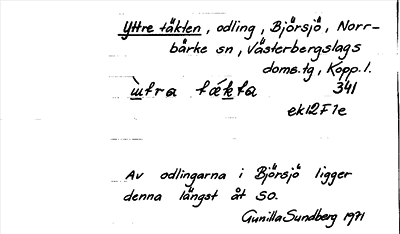 Yttre täkten, odling, Björsjö, Norr-
bärke sn, Västerbergslags
doms.tg, Kopp. l.
341
ek12F1e
Av odlingarna i Björsjö ligger
denna längst åt SO.
Gunilla Sundberg 1971